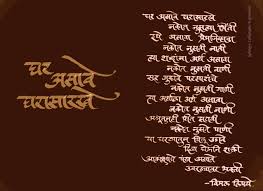 घर असावे
घरासारखे
घर असावे घरासारखे
नकोत नुसत्या भिंती
इथे असावा प्रेमजिव्हाळा
नकोत नुसती नाती
त्या शब्दांना अर्थ असावा
नकोत नुसती वाणी
सूर जुळावे परस्परांचे
नकोत नुसती गाणी
त्या अर्थाला अर्थ असावा
नकोत नुसती नाणी
नकोत नुसते पाणी
या घरट्यातून पिल्लू उडावे
दिव्य घेऊनी शक्ती
आकांक्षांचे पंख असावे
उंबरठ्यावर भक्ती